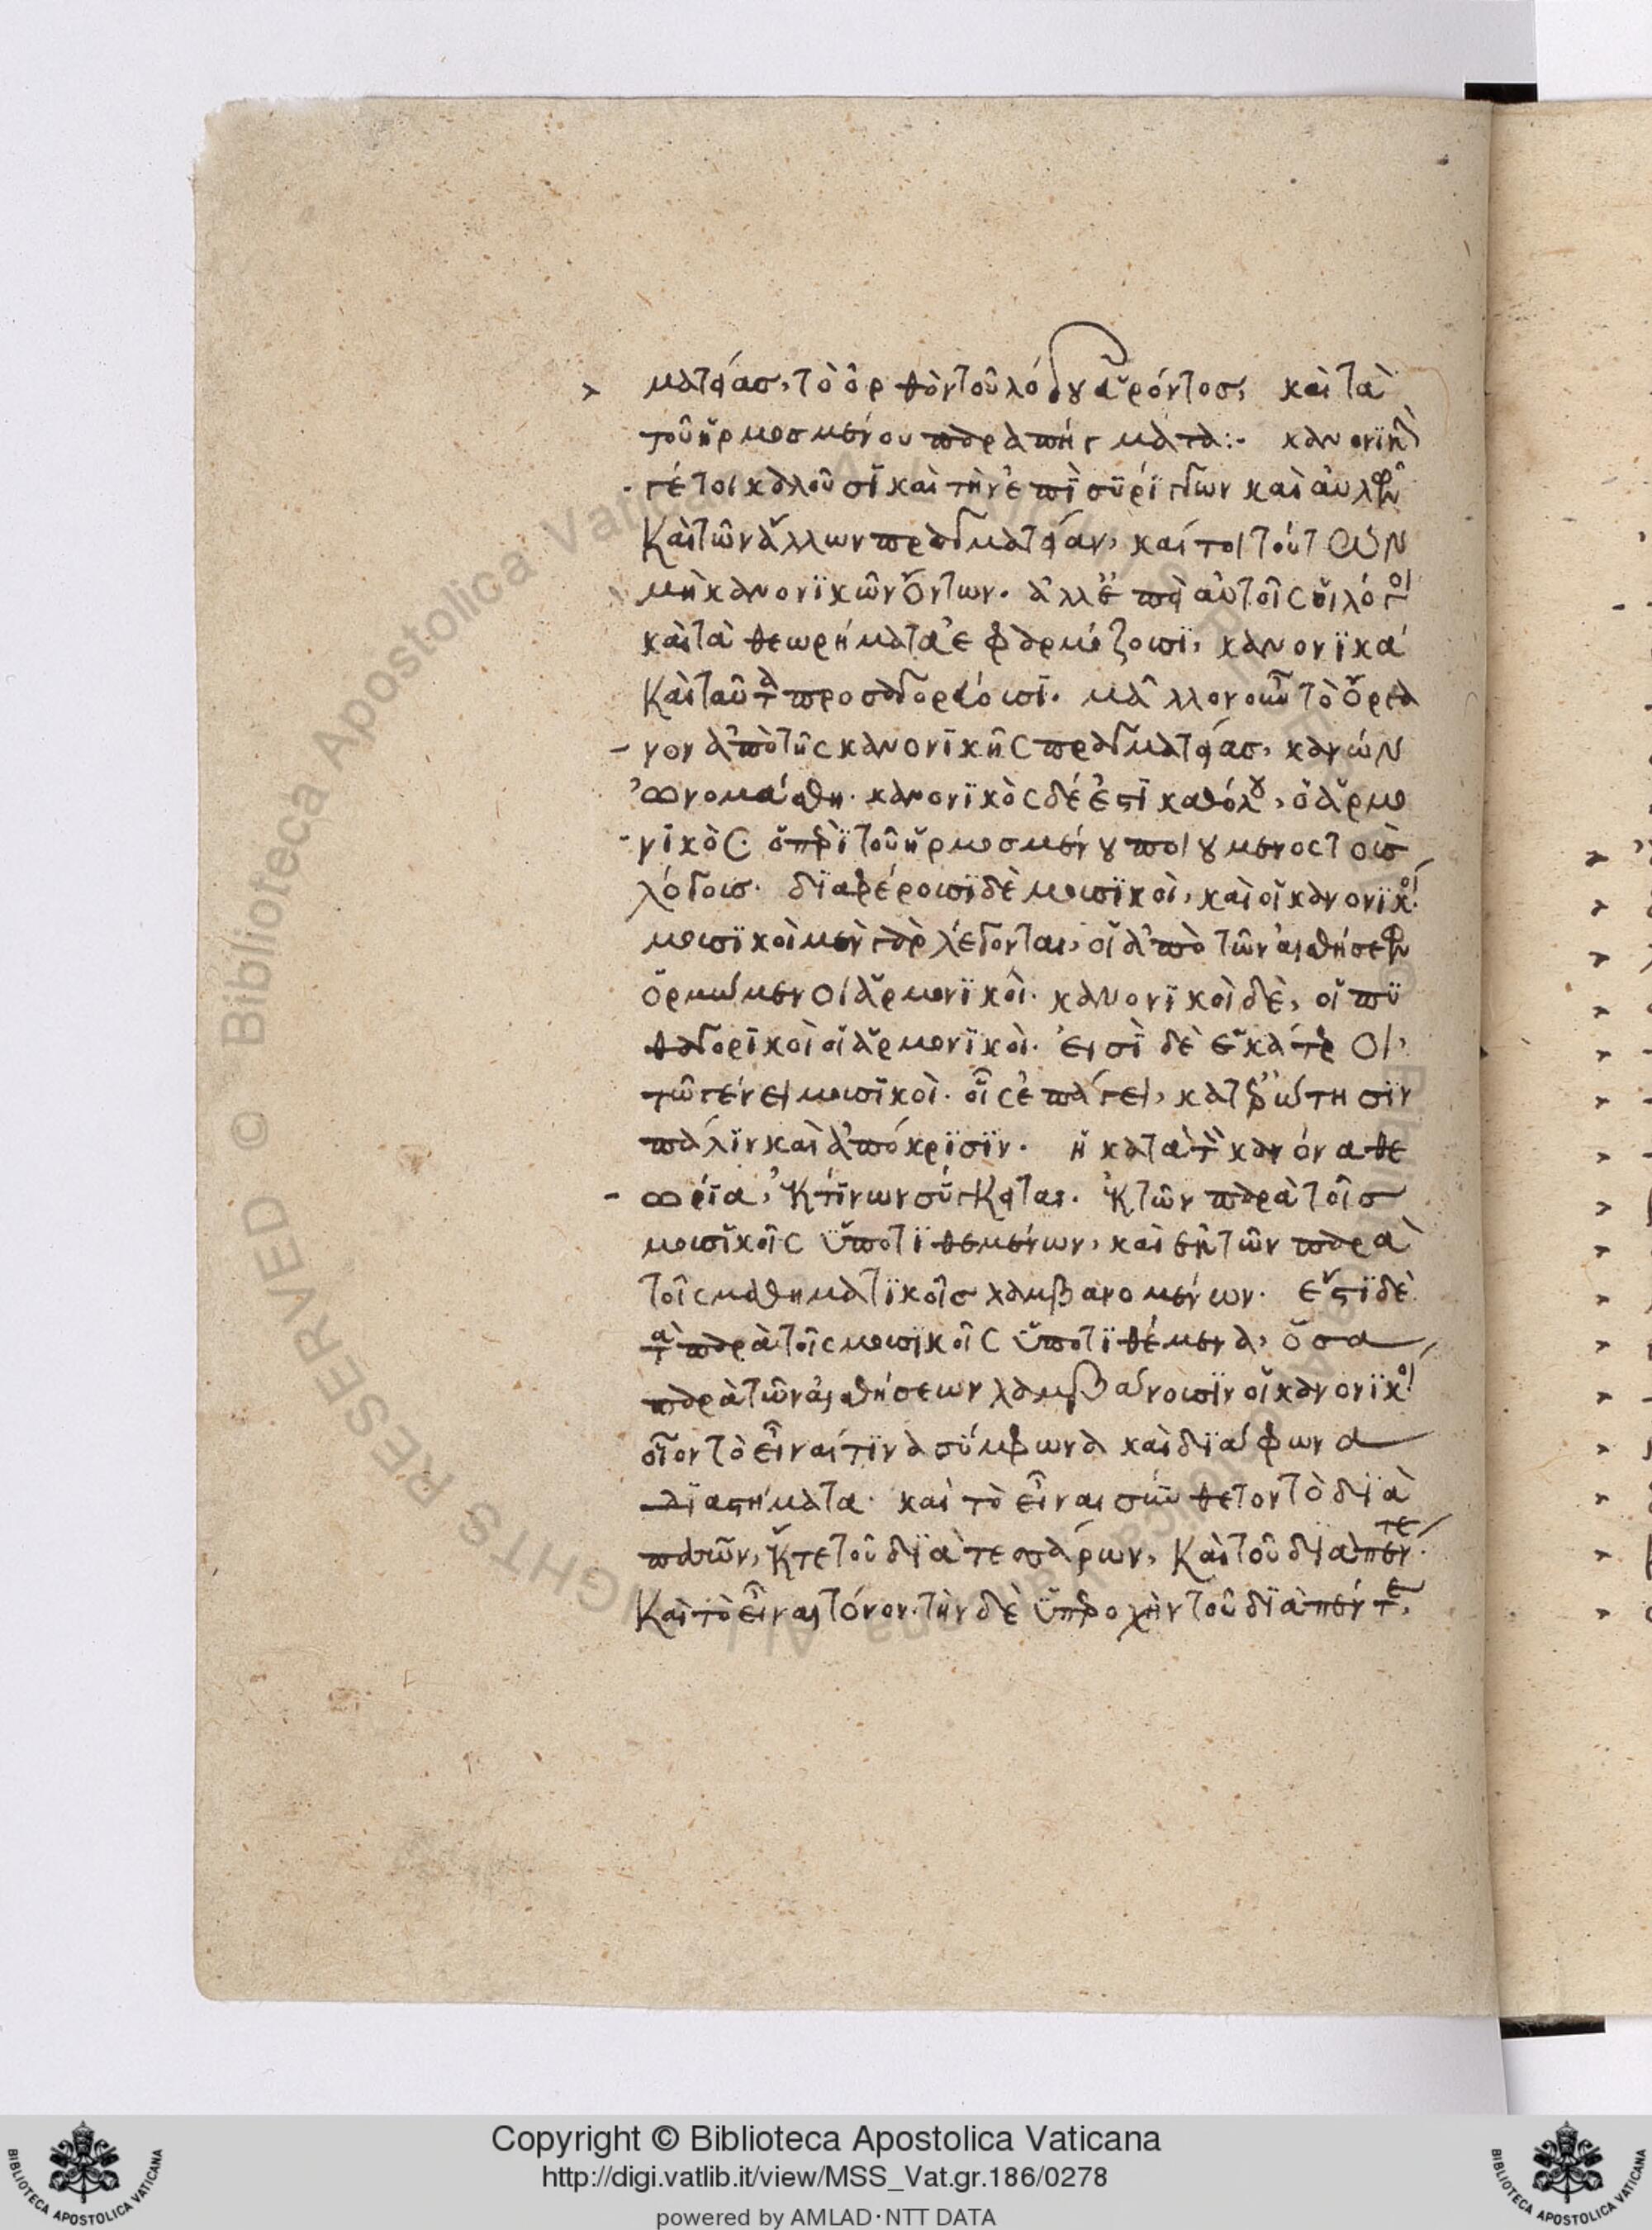 ματείας, τὸ ὀρθὸν τοῦ λόγου εὑρόντος, καὶ τὰ
τοῦ ἡρμοσμένου παραπήγματα :· κανονικὴν
γέ τοι καλοῦσι καὶ τὴν ἐπὶ συρίγγων καὶ αὐλῶν
καὶ τῶν ἄλλων πραγματείαν, καίτοι τούτων
μὴ κανονικῶν ὄντων. ἀλλ' ἐπεὶ αὐτοῖς οἱ λόγοι
καὶ τὰ θεωρήματα ἐφαρμόζουσι, κανονικὰ
καὶ ταῦτα προσαγορεύουσι. μᾶλλον οὖν τὸ ὄργα
νον ἀπὸ τῆς κανονικῆς πραγματείας, κανών
ὠνομάσθη. κανονικὸς δέ ἐστι καθόλου, ὁ ἁρμο
νικὸς ὁ περὶ τοῦ ἡρμοσμένου ποιούμενος τοὺς
λόγους. διαφέρουσι δὲ μουσικοὶ, καὶ οἱ κανονικοί.
μουσικοὶ μὲν γὰρ λέγονται, οἱ ἀπὸ τῶν αἰσθήσεων
ὁρμώμενοι ἁρμονικοὶ. κανονικοὶ δὲ, οἱ πυ
θαγορικοὶ οἱ ἁρμονικοὶ. εἰσὶ δὲ ἑκάτεροι,
τῷ γένει μουσικοὶ. οἷς ἐπάγει, κατ' ἐρώτησιν
πάλιν καὶ ἀπόκρισιν. ἡ κατὰ τὸν κανόνα θε
ωρία, ἐκ τίνων σύγκειται. ἐκ τῶν παρὰ τοῖς
μουσικοῖς ὑποτιθεμένων, καὶ ἐκ τῶν παρὰ
τοῖς μαθηματικοῖς λαμβανομένων. ἔστι δὲ
τὰ παρὰ τοῖς μουσικοῖς ὑποτιθέμενα, ὅσα
παρὰ τῶν αἰσθήσεων λαμβάνουσιν οἱ κανονικοί
οἷον τὸ εἶναί τινα σύμφωνα καὶ διάφωνα
διαστήματα. καὶ τὸ εἶναι σύνθετον τὸ διὰ
πασῶν, ἔκ τε τοῦ διὰ τεσσάρων, καὶ τοῦ διὰ πέντε.
καὶ τὸ εἶναι τόνον. τὴν δὲ ὑπεροχὴν τοῦ διὰ πέντε,
Copyright © Biblioteca Apostolica Vaticana
http://digi.vatlib.it/view/MSS_Vat.gr.186/0278
powered by AMLAD·NTT DATA